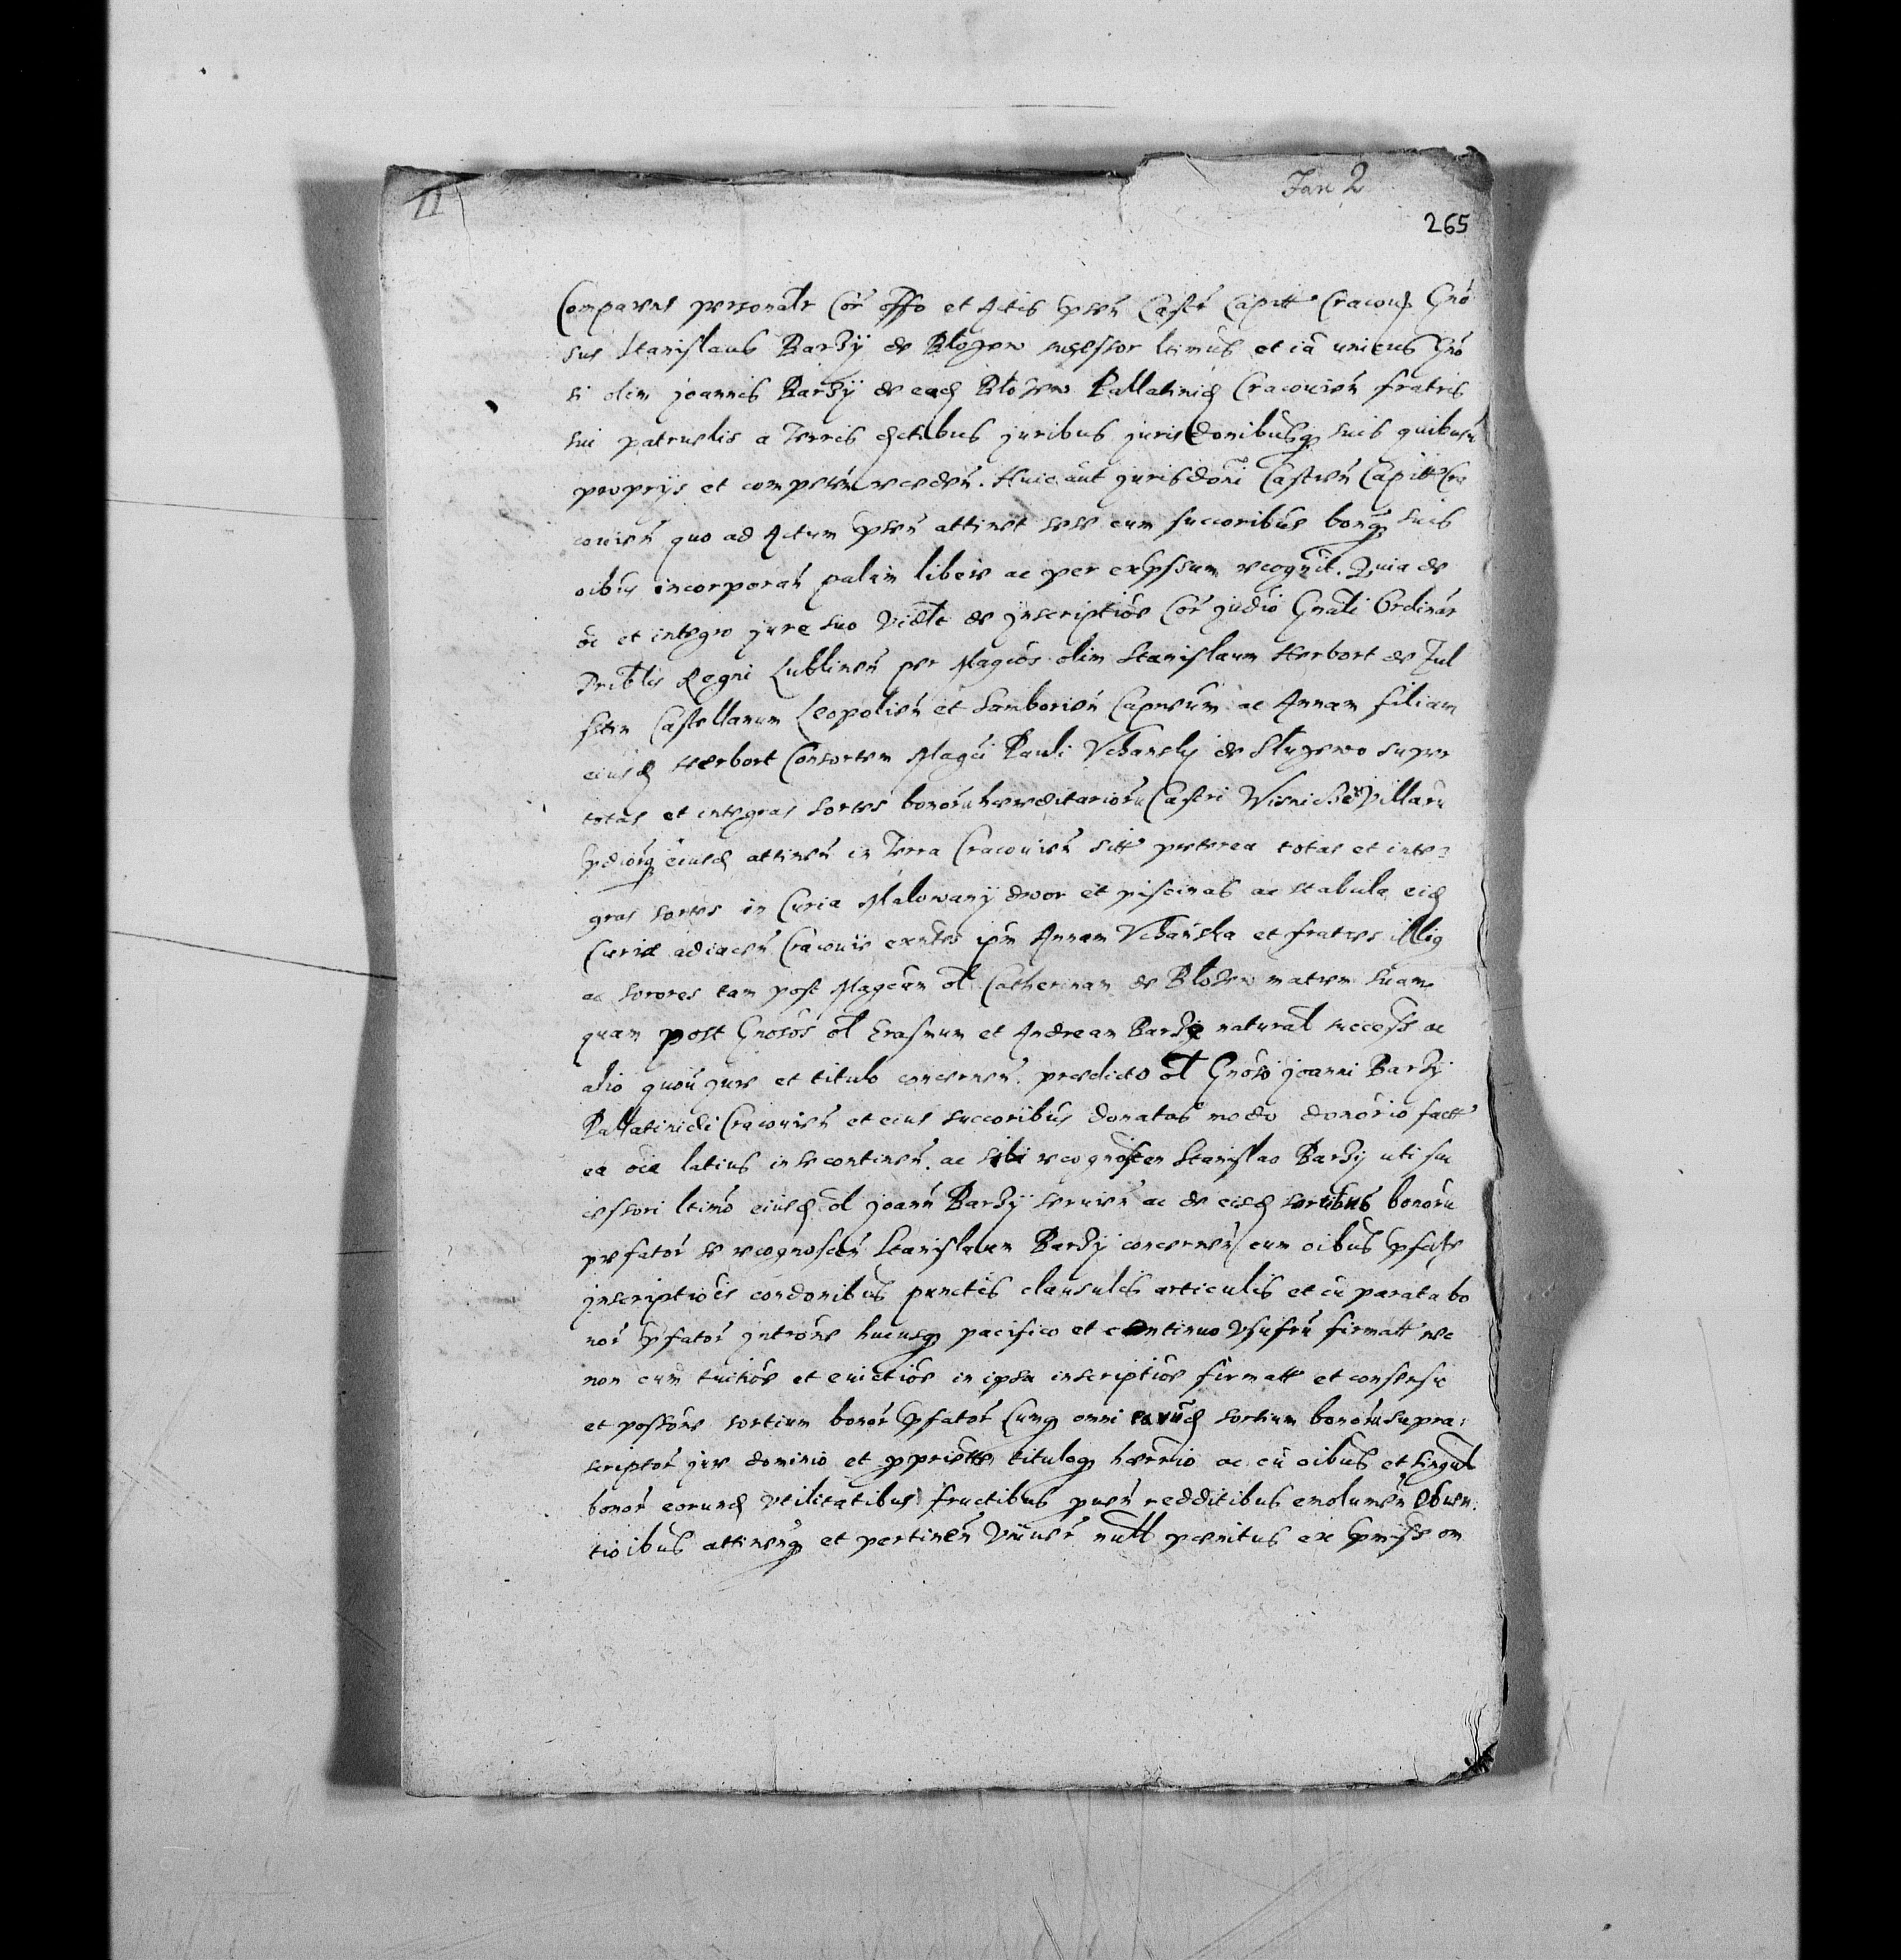 11
Jan 2
265
Comparens personalr Cor offo et Actis pnten Castr Capitt Cracou Gno
sus Stanislaus Barzÿ de Blozew successor ltimus et iã unicus Gno
si olim Joannis Barzÿ de ead Blozew Pallatinid Cracouien fratris
sui patruelis a Terris districtibus juribus jurisdonibusq suis quibusu
proprÿs et competen receden. Huic aut jurisdoni Castren Capitt Cra
couien quo ad Actum pnten attinet sese cum succoribus bonisq suis
oibus incorporan palam libere ac per expssum recognouit. Quia de
oi et integro jure suo videlt de Inscriptioe Cor judio Gnali Ordinar
Tribtlis Regni Lublinen per Magcos olim Stanislaum Herbort de Ful
sten Castellanum Leopolien et Samborien Capneum ac Annam filiam
eiusd Herbort Consortem Magci Pauli Vchansky de Sluzewo super
totas et integras sortes bonoru haereditarioru Castri Wisnicze et Villaru
pdioruq eiusd attinen in Terra Cracouien sitt preterea totas et inte=
gras sortes in Curia Malowany dwor et piscinas ac stabula eid
Curiae adiacen Cracouie exnte ipm Annam Vchanska et fratres illiq
ac sorores tam post Magcam ol Catherinam de Blozew matrem suam
quam post Gnosos ol Erasmum et Andream Barzÿ natural success ac
alio quouis jure et titulo concernen. predicto ol Gnoso Joanni Barzÿ
Pallatinidi Cracouien et eius succoribus donatas modo donatorio factt
ea oia latius in se continen. ac sibi recognoscen Stanislao Barzÿ uti suc
cessori ltimo eiusd ol Joann Barzÿ seruien ac de eisd sortibus bonoru
prefator se recognoscen Stanislaum Barzÿ concernen cum oibus pfate
Inscriptiois condonibus punctis clausulis articulis et cu parata bo
nor pfator Intrõne hucusq pacifico et continuo Vsufru firmatt nec
non cum tuitioe et euictioe in ipsa inscriptioe firmatt et consensu
et possone sortium bonor pfator Cumq omni earud sortium bonoru supra=
scriptor jure dominio et pprietatte tituloq haerrio ac cu oibus et singul
bonor eorund vtilitatibus fructibus prouen redditibus emolumen Obuen=
tioibus attinenq et pertinen Vniuer null paenitus ex pmiss om